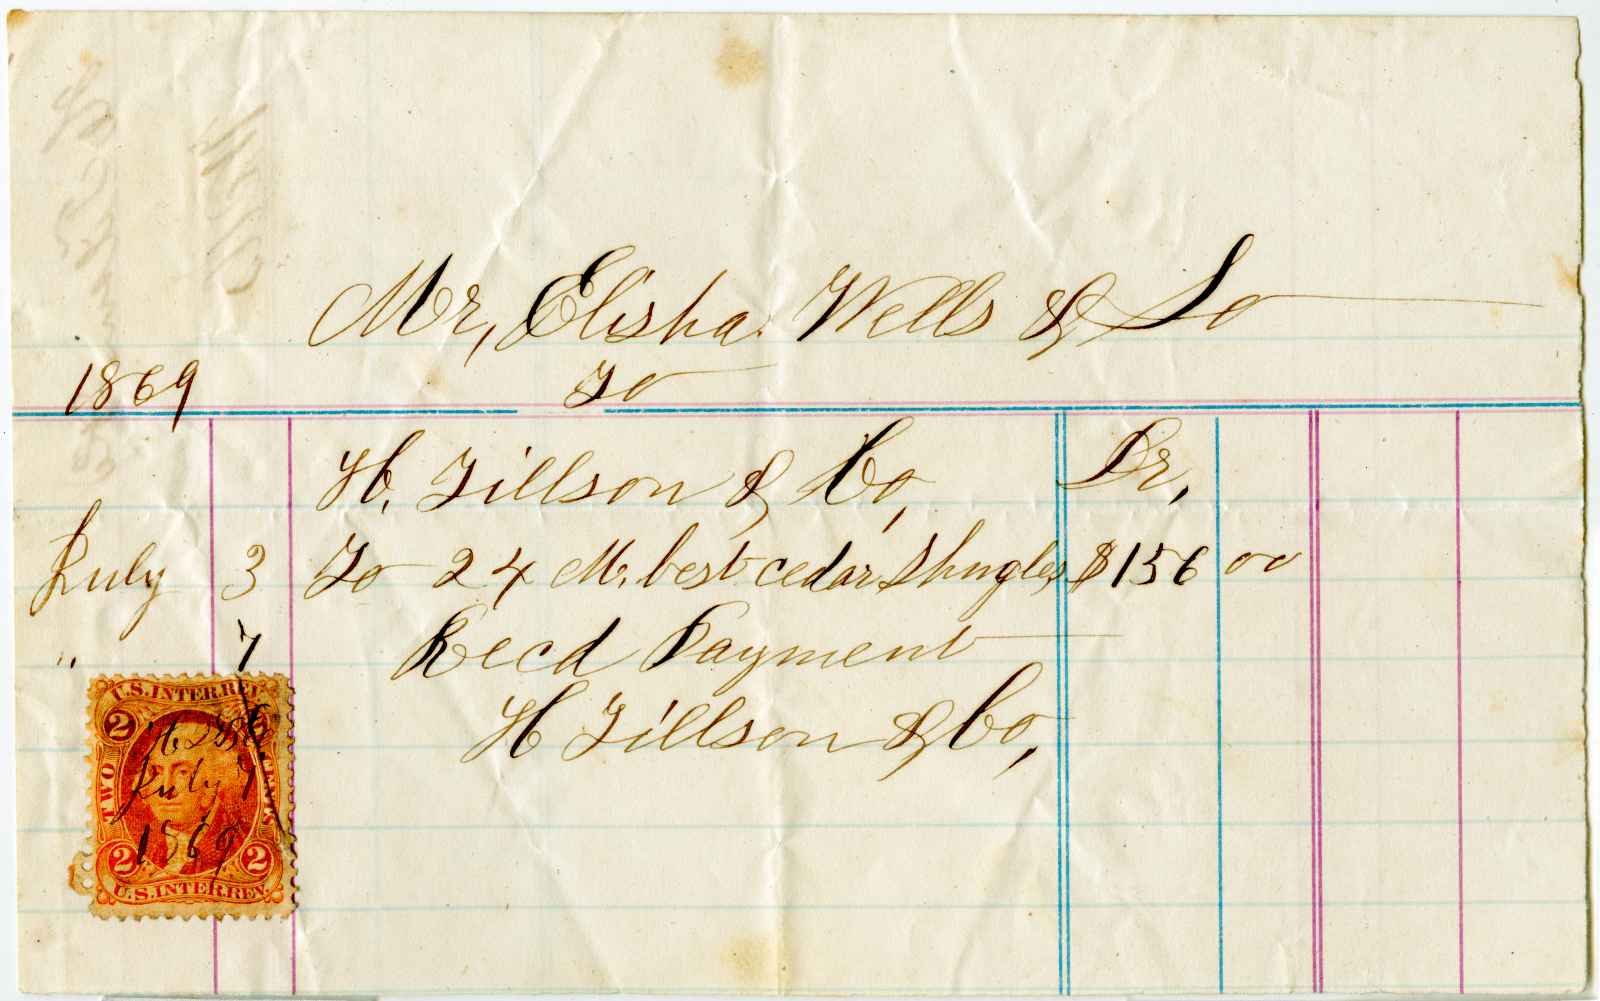 Mr, Elisha Wells & So
1869 To
H. Tillson & Co, Dr,
July 3 To 24 M. best cedar Shngles $156 00
" 7 Recd Payment
H Tillson & Co,
U.S. INTER. REV.
2 2
H.
TWO CENTS
July 7
1869
2 2
U.S. INTER. REV.